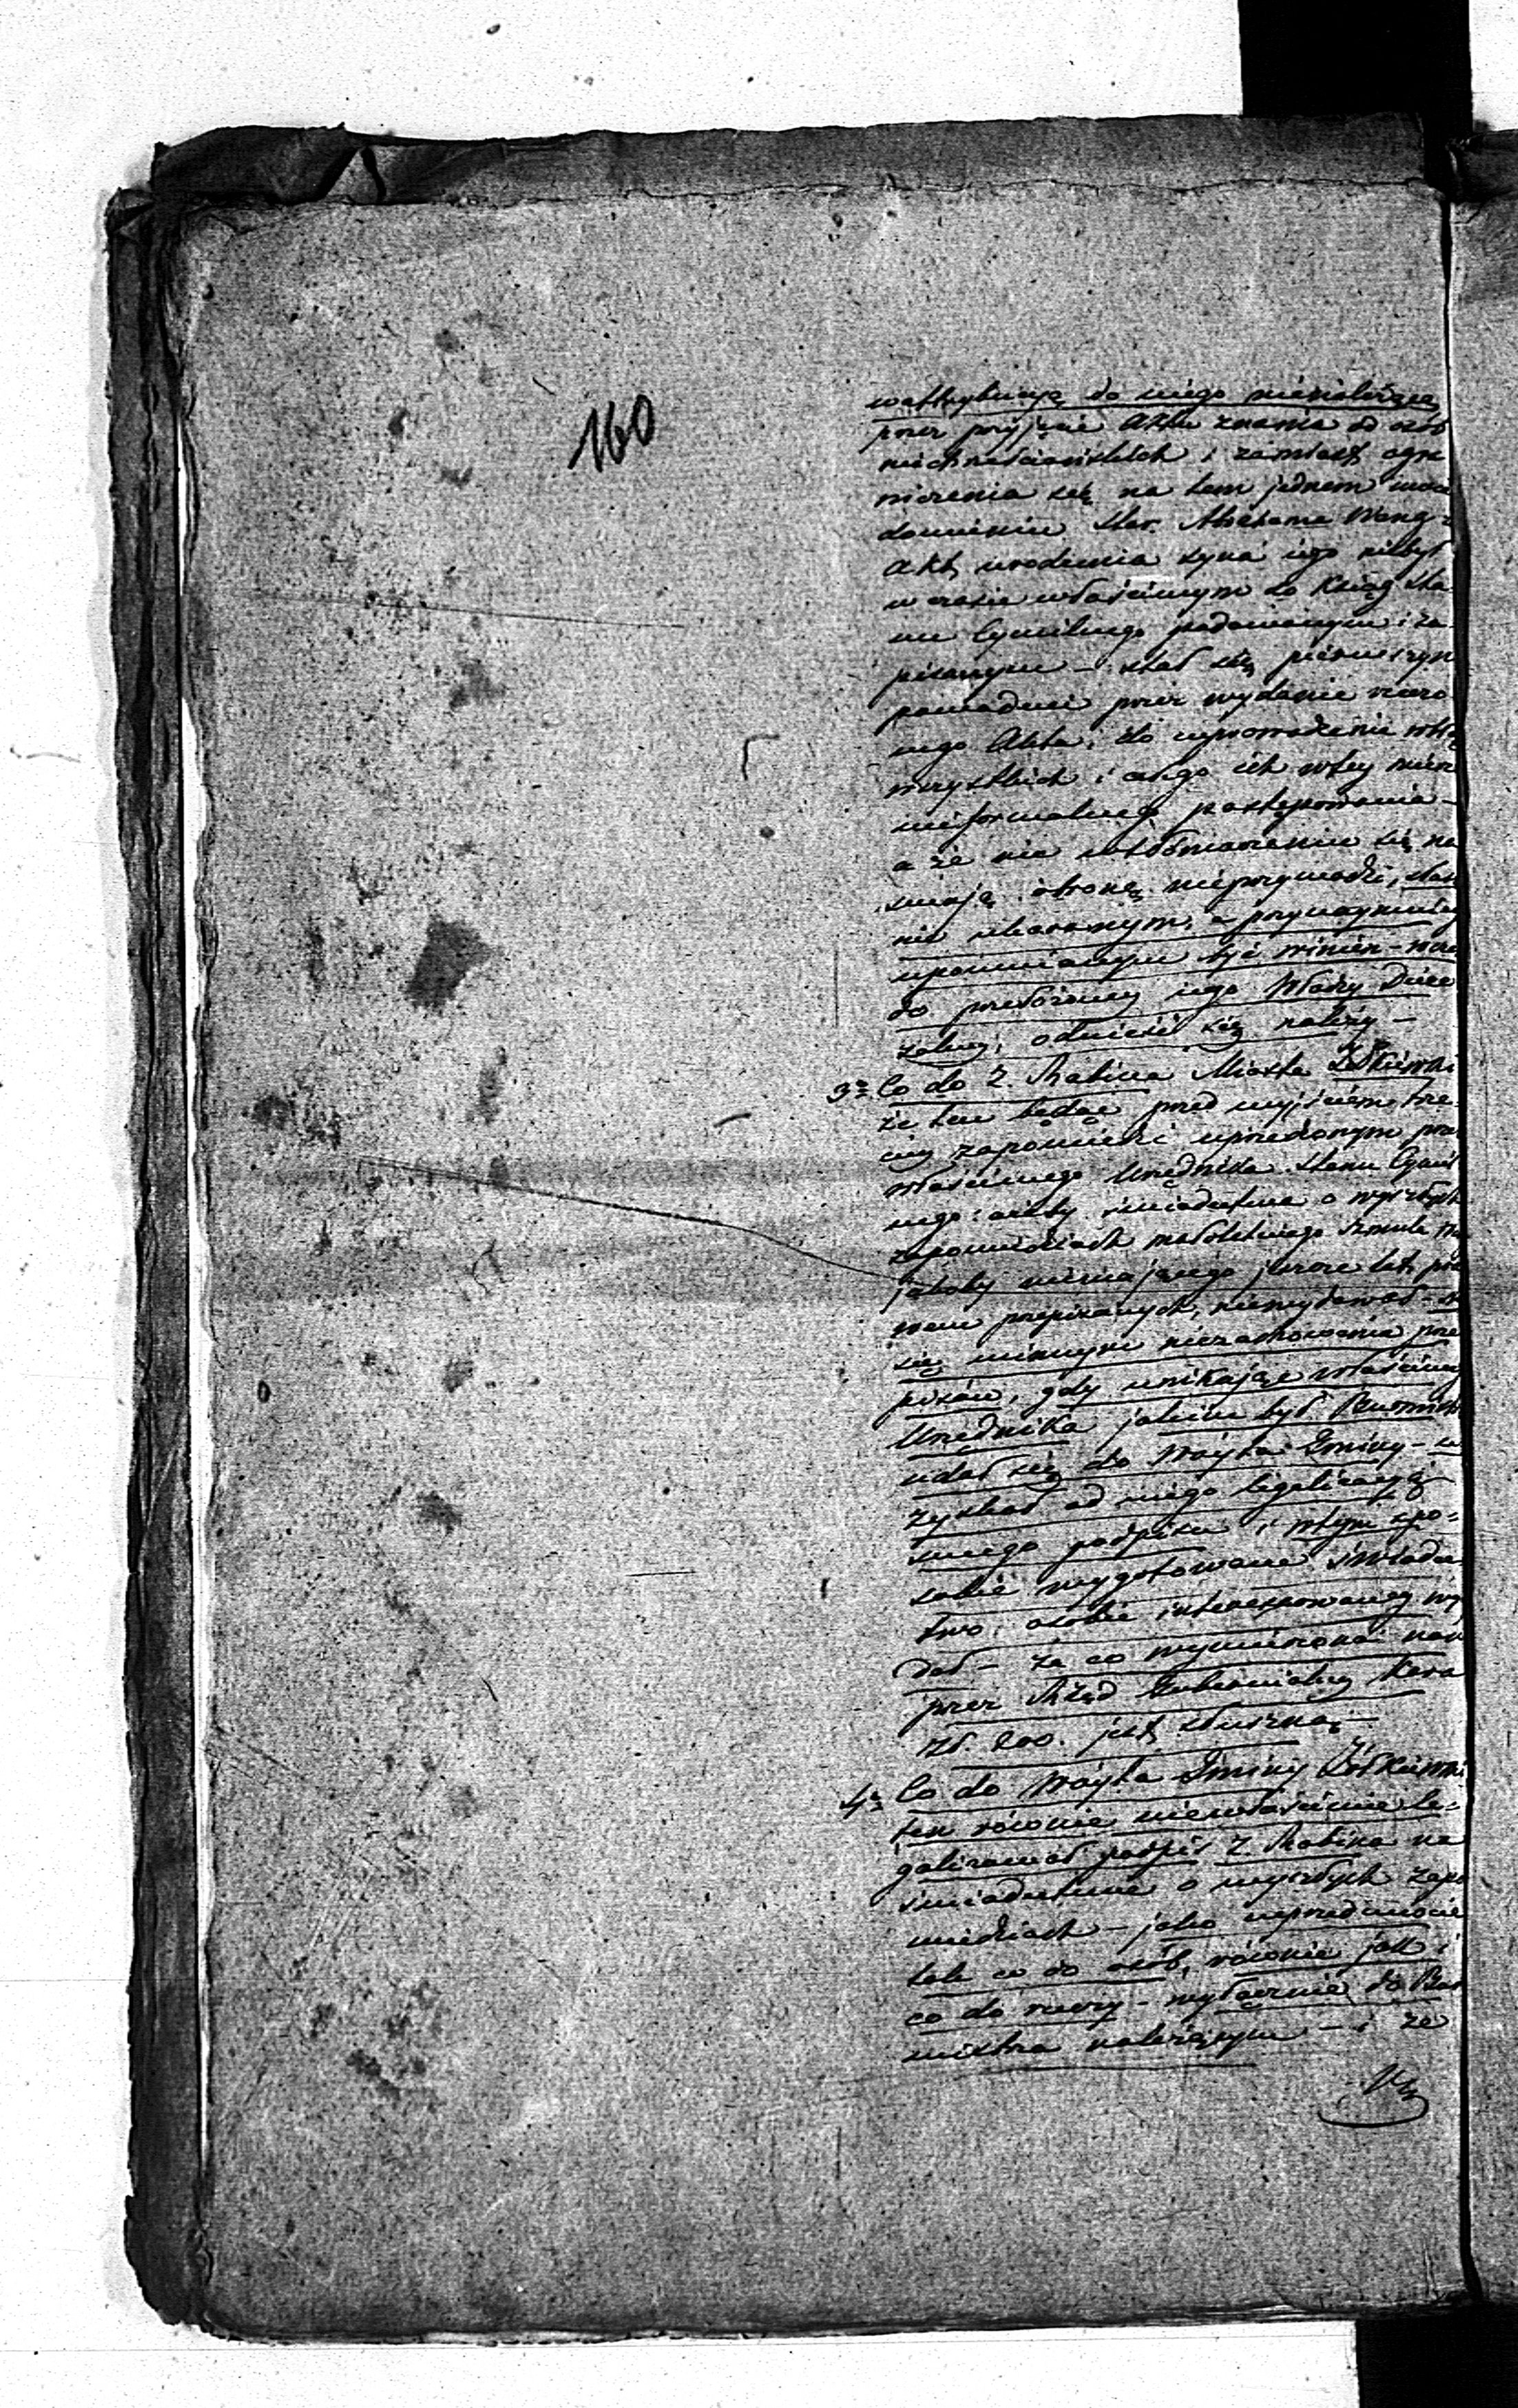 160
wattrybucyą do niego nienależące
przez przyjęcie Aktu znania od osób
niechrześciańskich i zamiast ogra
niczenia się na tem jednem
Star. Abrahama
Akt urodzenia syna iego niebył
w czasie właściwym do Ksiąg Sta
nu Cywilnego podanym i za
pisanym – stał się pierwszym
powodem przez wydanie rzeczo
nego Aktu, do wprowadzenia
wszystkich i całego ich w tey mierze
nieformalnego postępowania –
a że nie się na
swoją obronę nieprzywodzi,
ukaranym, a przynaymniey
upomnianym być winien –
do przełożoney iego Władzy Diece
zalney, odnieść się należy –
3o Co do Z. Rabina Miasta Żółkiewki
że ten będąc przed wyjściem trze-
ciey zapowiedzi uprzedzonym przez
właściwego Urzędnika Stanu Cywil
nego: ażeby świadectwa o wyszłych
zapowiedziach małoletniego Szmula
jakoby niemającego jeszcze lat pra
wem przepisanych, niewydawał – 
się winnym niezachowania prze
pisów, gdy unikając właściwego
Urzędnika jakim był Burmistrz
udał się do Woyta Gminy – u
zyskał od niego legalizacyą
swego podpisu i w tym spo-
sobie wygotowane świadec
two, osobie interesowaney wy
dał – za co wymierzona nań
przez Rząd Gubernialny kara
Zł. 200. jest słuszną –
4o Co do Woyta Gminy Żółkiewki
ten równie niewłaściwie le-
galizował podpis Z. Rabina na
świadectwie o wyszłych zapo
wiedziach – jako w przedmiocie
tak co do osób, równie jak i
co do rzeczy – wyłącznie do Bur
mistrza należącym – i że